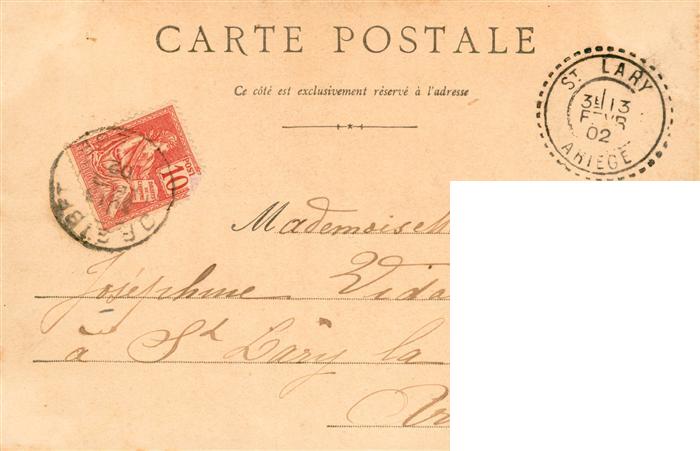 CARTE POSTALE
Ce côté est exclusivement réservé à l'adresse
ST LARY
3E 13
FEVR
02
ARIEGE
10
POSTES
Mademoisell
Joséphine Vida
à St Lary la
Ar